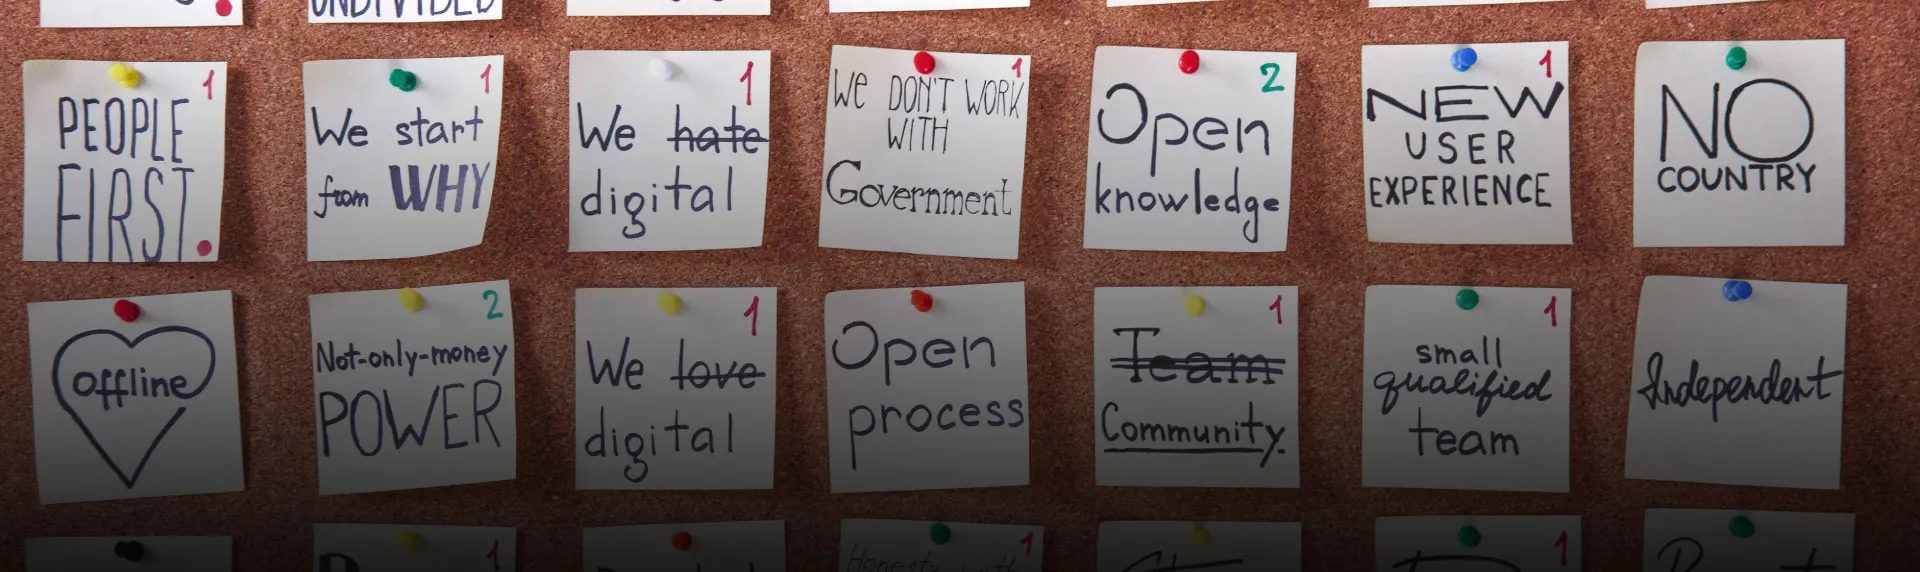 UNDIVIDED
1
PEOPLE
FIRST.
1
We start
from WHY
1
We hate
digital
1
We DON'T WORK
WITH
Government
2
Open
knowledge
1
NEW
USER
EXPERIENCE
NO
COUNTRY
offline
2
Not-only-money
POWER
1
We love
digital
Open
process
1
Team
Community.
1
small
qualified
team
Independent
1
1
Honesty
1